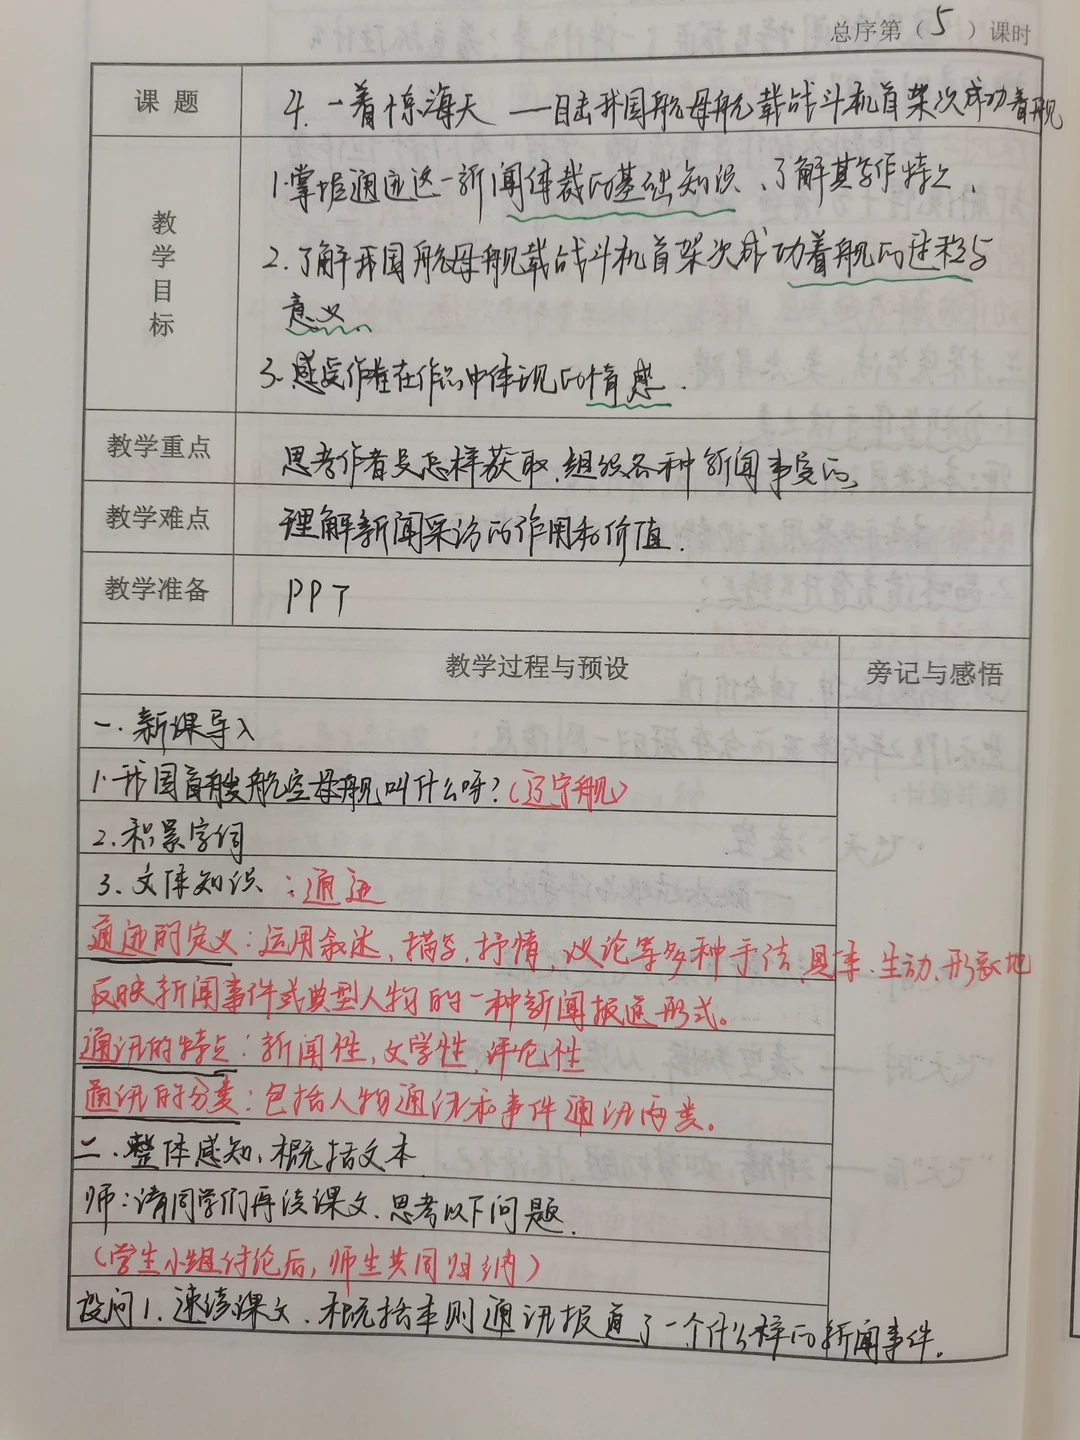 总序第（5）课时
课题
4.一着惊海天——目击我国航母舰载战斗机首架次成功着舰
教学目标
1.掌握通迅这一新闻体裁的基础知识、了解其写作特点.
2.了解我国航母舰载战斗机首架次成功着舰的过程与
意义.
3.感受作者在作品中体现的情感.
教学重点
思考作者是怎样获取、组织各种新闻事实的.
教学难点
理解新闻采访的作用和价值.
教学准备
PPT
教学过程与预设
旁记与感悟
一.新课导入
1.我国首艘航空母舰叫什么呀?(辽宁舰)
2.积累字词
3、文体知识：通迅
通迅的定义：运用叙述、描写、抒情、议论等多种手法,具体、生动、形象地
反映新闻事件或典型人物的一种新闻报道形式。
通讯的特点：新闻性,文学性,评论性
通讯的分类：包括人物通讯和事件通讯两类。
二.整体感知、概括文本
师：请同学们再读课文、思考以下问题.
(学生小组讨论后,师生共同归纳)
设问1.速读课文、概括本则通讯报道了一个什么样的新闻事件.